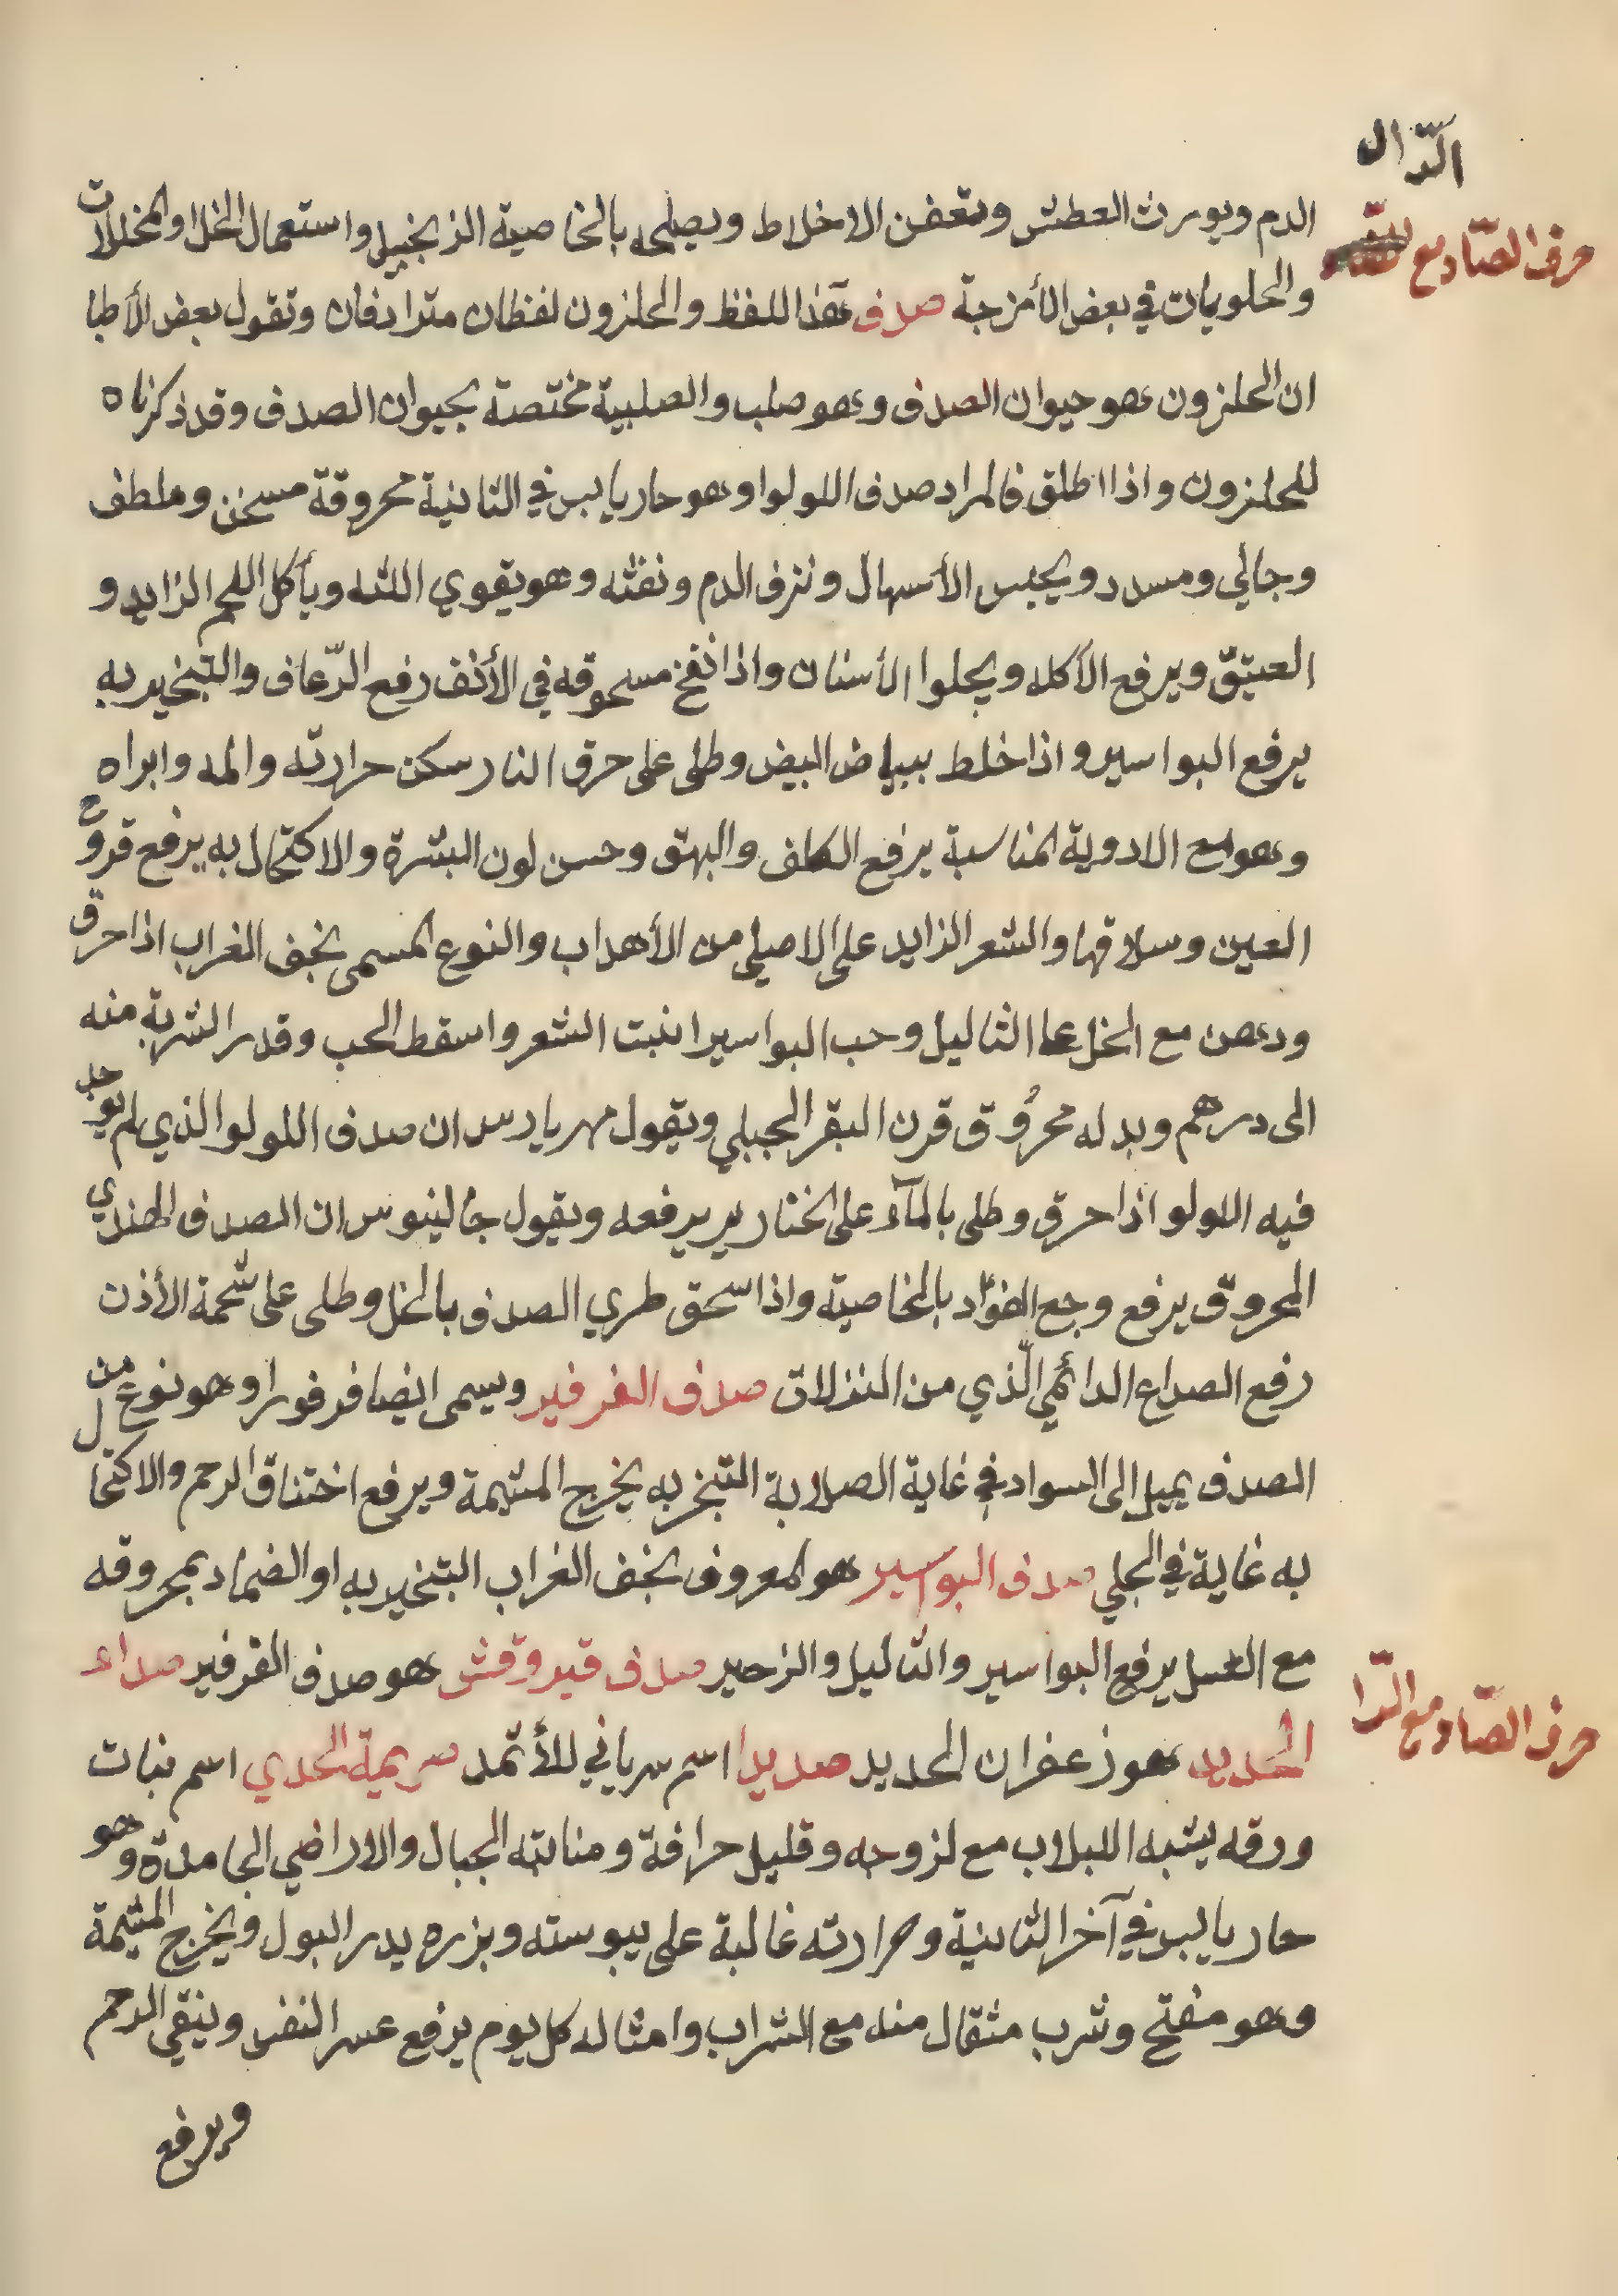 الدّال
حرف الصّاد مع
الدم ويورث العطش وتعفن الاخلاط ويصلحه بالخاصية الزنجبيل واستعمال الخل او المخللات
والحلويات في بعض الأمزجة صدف هذا اللفظ والحلزون لفظان مترادفان وتقول بعض الأطبا
ان الحلزون هو حيوان الصدف وهو صلب والصلبية مختصة بحيوان الصدف وقد ذكرناه
للحلزون واذا اطلق فالمراد صدف اللولو وهو حار يابس في الثانية محروقة مسخن وملطف
وجالي ومسدد ويحبس الأسهال ونزف الدم ونفثه وهو يقوي اللثه ويأكل اللحم الزايد و
العتيق ويرفع الآكله ويجلوا الأسنان واذا نفخ مسحوقه في الأنف رفع الرّعاف والتبخير به
يرفع البواسير واذا خلط ببياض البيض وطلى على حرق النار سكن حرارته والمه وابراه
وهو مع الادوية المناسبة يرفع الكلف والبهق وحسن لون البشرة والاكتحال به يرفع قروح
العين وسلاقها والشعر الزايد على الاصلي من الأهداب والنوع المسمى بخف الغراب اذا حرق
ودهن مع الخل عا الثاليل وحب البواسير انبت الشعر واسقط الحب وقدر الشربة منه
الى درهم وبدله محرُوق قرن البقر الجبلي ويقول مهريارس ان صدف اللولو الذي لم يوجد
فيه اللولو اذا حرق وطلى بالمآء على الخنازير يرفعه ويقول جالينوس ان الصدف الهندي
المحروق يرفع وجع الفؤاد بالخاصية واذا سحق طري الصدف بالخل وطلى على شحمة الأذن
رفع الصداع الدائمي الّذي من النزلات صدف الفرفير ويسمى ايضا فرفورا وهو نوع من
الصدف يميل الى السواد في غاية الصلابة التبخر به يخرج المشيمة ويرفع اختناق الرحم والاكتحال
به غاية في الجلي صدف البواسير هو المعروف بخف الغراب التبخير به او الضماد بمحروقه
مع العسل يرفع البواسير والثاليل والزحير صدف قيروقش هو صدف الفرفير صداء
حرف الصّاد مع الرّا
الحديد هو زعفران الحديد صديدا اسم سرياني للأثمد صريمة الجدي اسم نبات
ورقه يشبه اللبلاب مع لزوجه وقليل حرافة ومنابته الجبال والاراضي الجامدة وهو
حار يابس في آخر الثانية وحرارته غالبة على يبوسته وبزره يدر البول ويخرج المشيمة
وهو مفتح وشرب مثقال منه مع الشراب وامثاله كل يوم يرفع عسر النفس وينقي الرحم
ويرفع